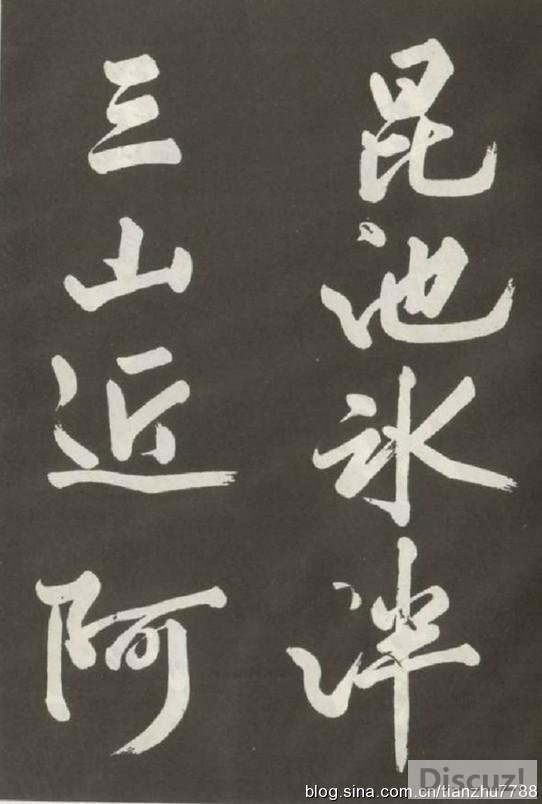 昆池氷泮
三山近阿
Discuz!
blog.sina.com.cn/tianzhu7788